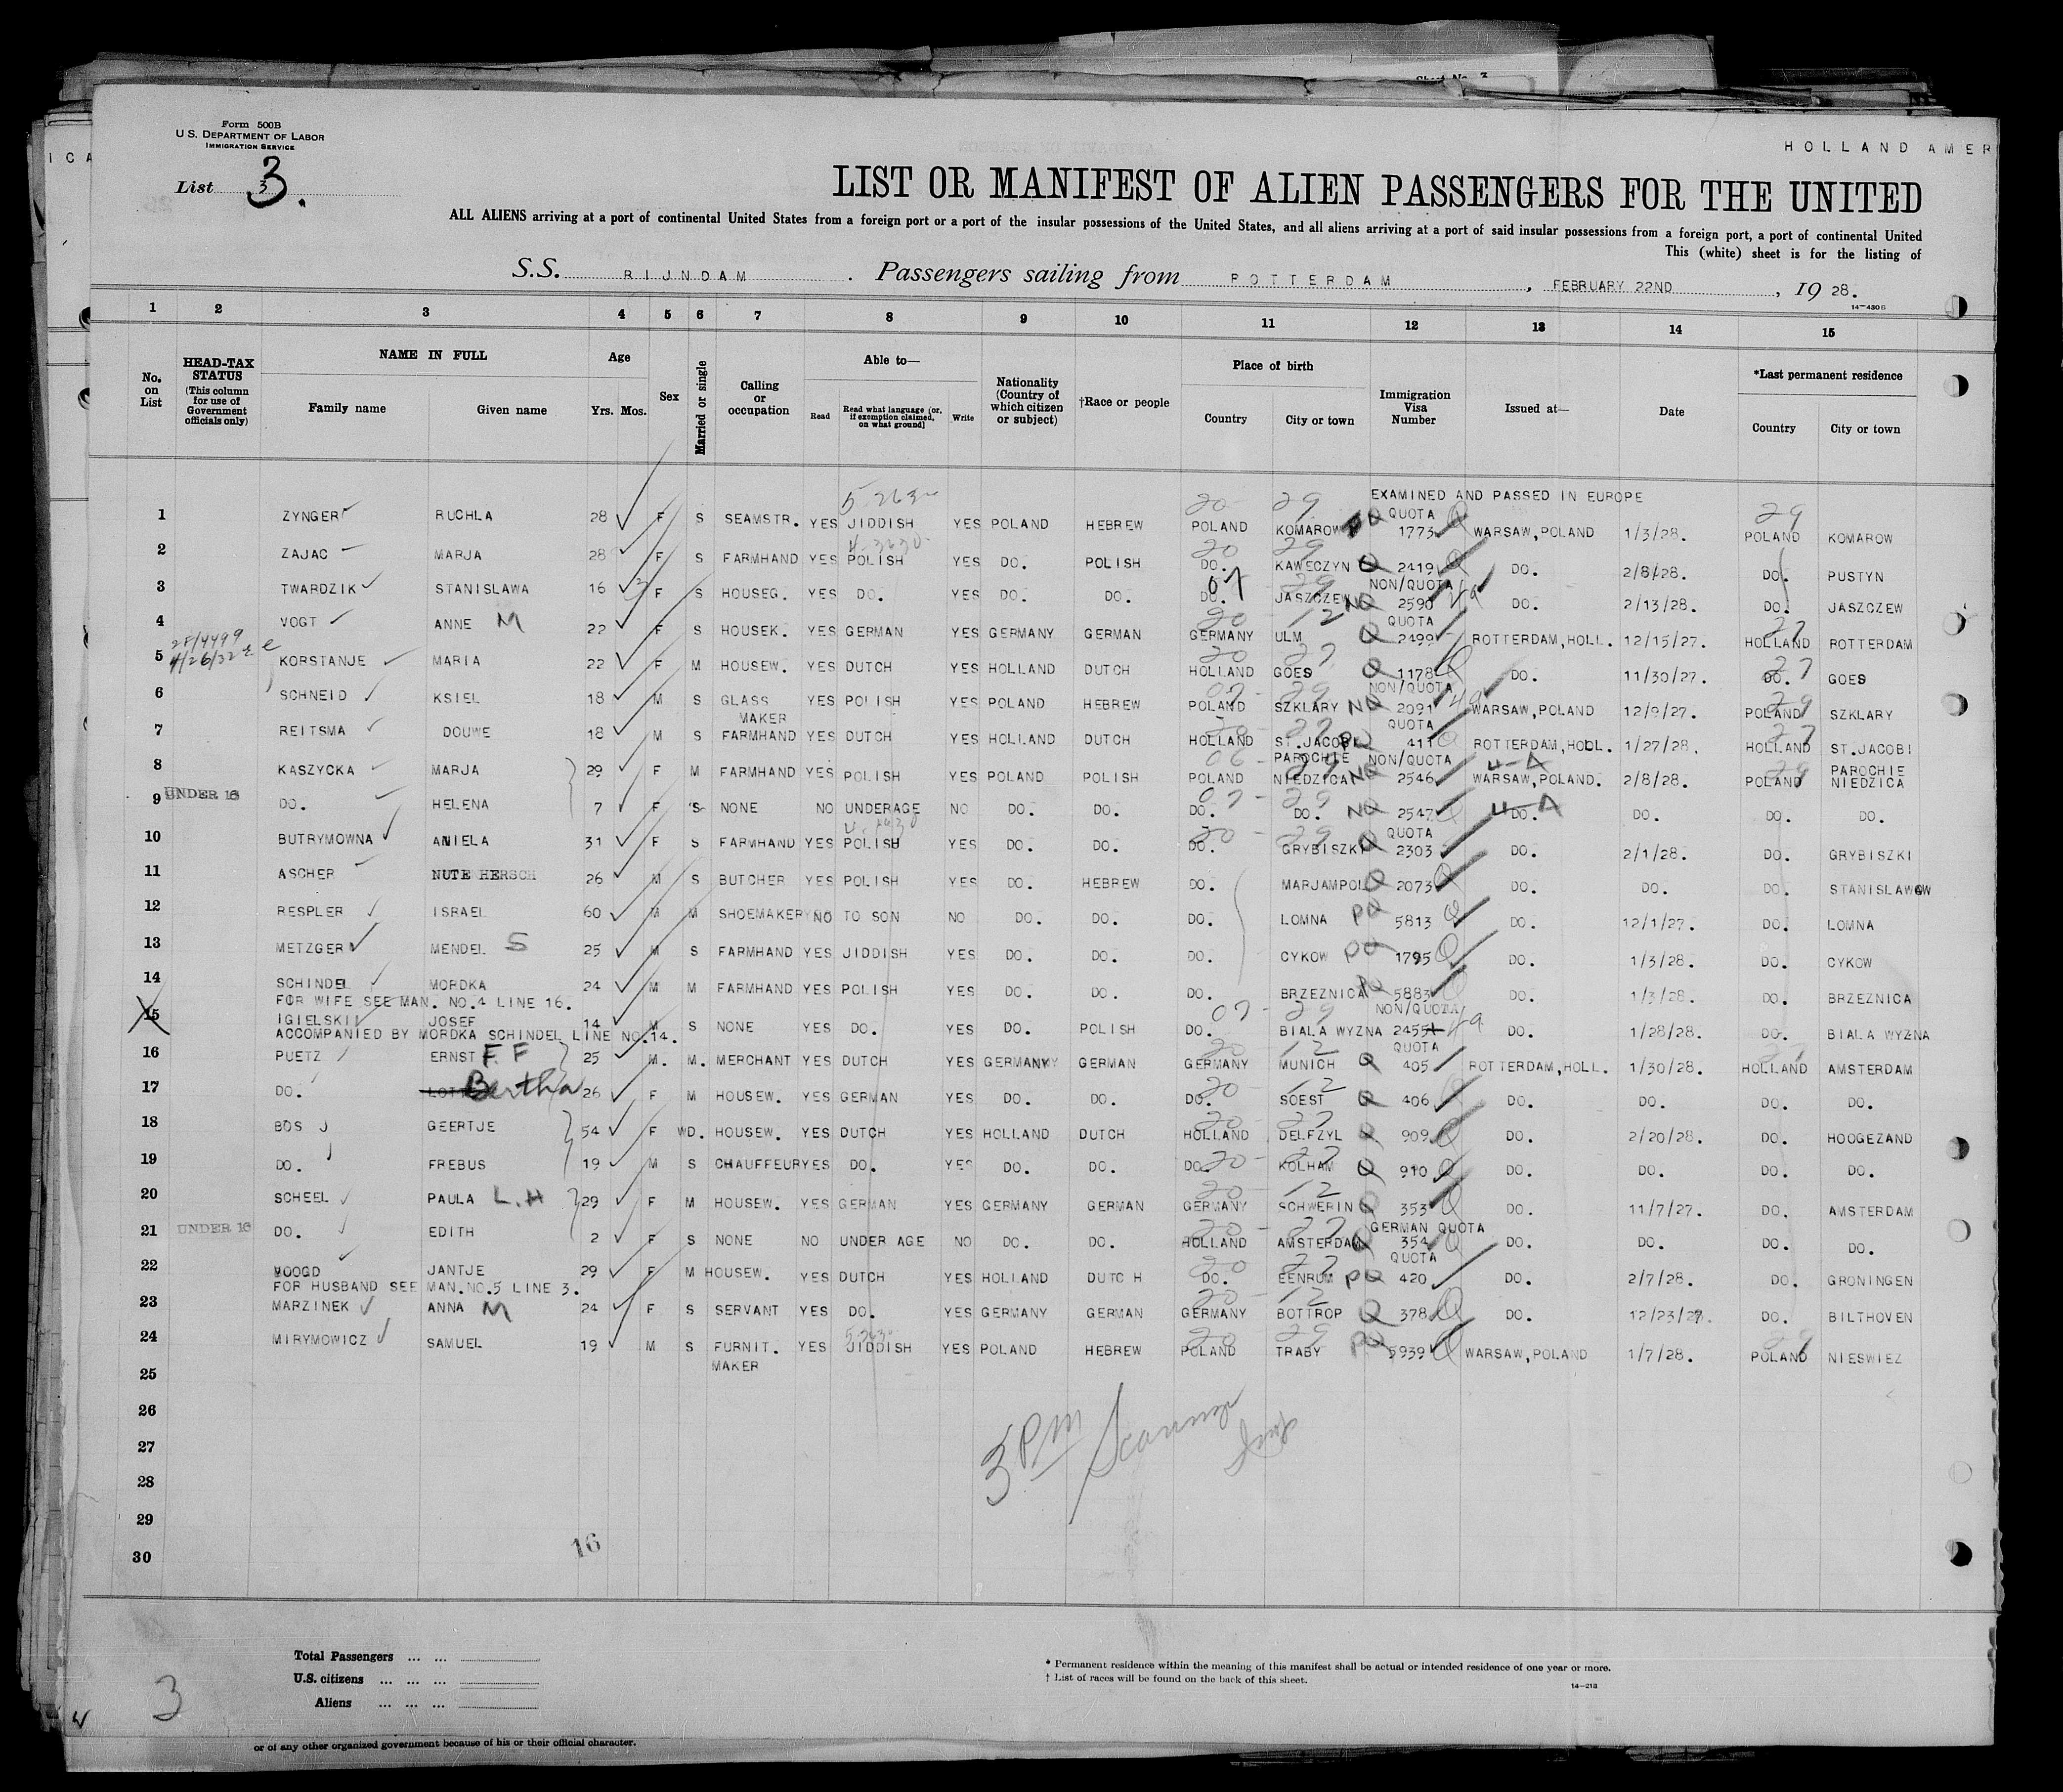 Sheet No. 3
Form 500B
U. S. DEPARTMENT OF LABOR
IMMIGRATION SERVICE
ICA
HOLLAND AMER
List 3 3.
LIST OR MANIFEST OF ALIEN PASSENGERS FOR THE UNITED
ALL ALIENS arriving at a port of continental United States from a foreign port or a port of the insular possessions of the United States, and all aliens arriving at a port of said insular possessions from a foreign port, a port of continental United
This (white) sheet is for the listing of
S.S. RIJNDAM. Passengers sailing from ROTTERDAM, FEBRUARY 22ND, 19 28.
14-430 B
1 2 3 4 5 6 7 8 9 10 11 12 13 14 15
No. on List
HEAD-TAX STATUS (This column for use of Government officials only)
NAME IN FULL
Family name Given name
Age
Yrs. Mos.
Sex
Married or single
Calling or occupation
Able to—
Read Read what language [or, if exemption claimed, on what ground] Write
Nationality (Country of which citizen or subject)
†Race or people
Place of birth
Country City or town
Immigration Visa Number
Issued at—
Date
*Last permanent residence
Country City or town
EXAMINED AND PASSED IN EUROPE
1 ZYNGER RUCHLA 28 F S SEAMSTR. YES JIDDISH YES POLAND HEBREW POLAND KOMAROW QUOTA 1773 WARSAW,POLAND 1/3/28. POLAND KOMAROW
2 ZAJAC MARJA 28 F S FARMHAND YES POLISH YES DO. POLISH DO. KAWECZYN Q 2419 DO. 2/8/28. DO. PUSTYN
3 TWARDZIK STANISLAWA 16 3 F S HOUSEG. YES DO. YES DO. DO. DO. JASZCZEW NQ NON/QUOTA 2590 DO. 2/13/28. DO. JASZCZEW
4 VOGT ANNE M 22 F S HOUSEK. YES GERMAN YES GERMANY GERMAN GERMANY ULM Q QUOTA 2499 ROTTERDAM,HOLL. 12/15/27. HOLLAND ROTTERDAM
2F/4499
4/26/32
5 KORSTANJE MARIA 22 F M HOUSEW. YES DUTCH YES HOLLAND DUTCH HOLLAND GOES Q 1178 DO. 11/30/27. DO. GOES
6 SCHNEID KSIEL 18 M S GLASS MAKER YES POLISH YES POLAND HEBREW POLAND SZKLARY NQ NON/QUOTA 2091 WARSAW,POLAND 12/9/27. POLAND SZKLARY
7 REITSMA DOUWE 18 M S FARMHAND YES DUTCH YES HOLLAND DUTCH HOLLAND ST.JACOBI PAROCHIE QUOTA 411 ROTTERDAM,HOLL. 1/27/28. HOLLAND ST.JACOBI PAROCHIE
8 KASZYCKA MARJA 29 F M FARMHAND YES POLISH YES POLAND POLISH POLAND NIEDZICA NQ NON/QUOTA 2546 WARSAW,POLAND. 2/8/28. POLAND NIEDZICA
9 UNDER 16 DO. HELENA 7 F S NONE NO UNDERAGE NO DO. DO. DO. DO. NQ 2547 DO. DO. DO. DO.
10 BUTRYMOWNA ANIELA 31 F S FARMHAND YES POLISH YES DO. DO. DO. GRYBISZKI QUOTA 2303 DO. 2/1/28. DO. GRYBISZKI
11 ASCHER NUTE HERSCH 26 M S BUTCHER YES POLISH YES DO. HEBREW DO. MARJAMPOL 2073 DO. DO. DO. STANISLAWOW
12 RESPLER ISRAEL 60 M M SHOEMAKER NO TO SON NO DO. DO. DO. LOMNA PQ 5813 DO. 12/1/27. DO. LOMNA
13 METZGER MENDEL S 25 M S FARMHAND YES JIDDISH YES DO. DO. DO. CYKOW PQ 1795 DO. 1/3/28. DO. CYKOW
14 SCHINDEL MORDKA 24 M M FARMHAND YES POLISH YES DO. DO. DO. BRZEZNICA 5883 DO. 1/3/28. DO. BRZEZNICA
FOR WIFE SEE MAN. NO.4 LINE 16.
15 IGIELSKI JOSEF 14 M S NONE YES DO. YES DO. POLISH DO. BIALA WYZNA NON/QUOTA 2455 DO. 1/28/28. DO. BIALA WYZNA
ACCOMPANIED BY MORDKA SCHINDEL LINE NO.14.
16 PUETZ ERNST F F 25 M. M. MERCHANT YES DUTCH YES GERMANY GERMAN GERMANY MUNICH Q QUOTA 405 ROTTERDAM,HOLL. 1/30/28. HOLLAND AMSTERDAM
17 DO. Bertha 26 F M HOUSEW. YES GERMAN YES DO. DO. DO. SOEST Q 406 DO. DO. DO. DO.
18 BOS GEERTJE 54 F WD. HOUSEW. YES DUTCH YES HOLLAND DUTCH HOLLAND DELFZYL Q 909 DO. 2/20/28. DO. HOOGEZAND
19 DO. FREBUS 19 M S CHAUFFEUR YES DO. YES DO. DO. DO. KOLHAM Q 910 DO. DO. DO. DO.
20 SCHEEL PAULA L.H 29 F M HOUSEW. YES GERMAN YES GERMANY GERMAN GERMANY SCHWERIN Q 353 DO. 11/7/27. DO. AMSTERDAM
21 UNDER 16 DO. EDITH 2 F S NONE NO UNDER AGE NO DO. DO. HOLLAND AMSTERDAM GERMAN QUOTA 354 DO. DO. DO. DO.
22 VOOGD JANTJE 29 F M HOUSEW. YES DUTCH YES HOLLAND DUTCH DO. EENRUM PQ QUOTA 420 DO. 2/7/28. DO. GRONINGEN
FOR HUSBAND SEE MAN.NO.5 LINE 3.
23 MARZINEK ANNA M 24 F S SERVANT YES DO. YES GERMANY GERMAN GERMANY BOTTROP Q 378 DO. 12/23/27. DO. BILTHOVEN
24 MIRYMOWICZ SAMUEL 19 M S FURNIT. MAKER YES JIDDISH YES POLAND HEBREW POLAND TRABY PQ 5939 WARSAW,POLAND 1/7/28. POLAND NIESWIEZ
25
26
27
28
29
30
3 PM
16
Total Passengers ... ...
U.S. citizens ... ... ...
Aliens ... ... ...
3
* Permanent residence within the meaning of this manifest shall be actual or intended residence of one year or more.
† List of races will be found on the back of this sheet.
14-213
or of any other organized government because of his or their official character.